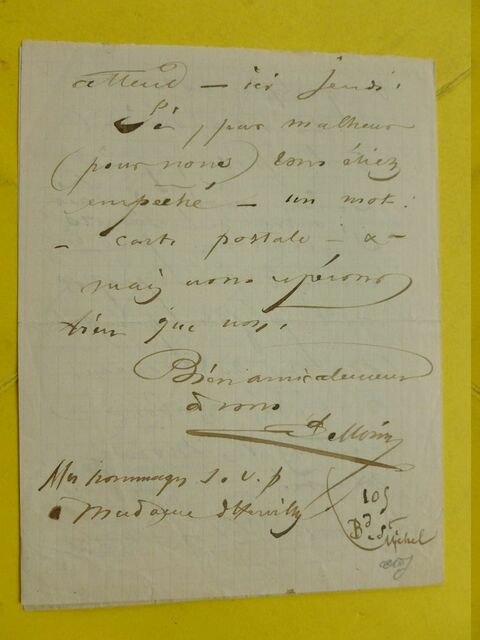 attend — ici Jeudi.
Si, par malheur
(pour nous) vous étiez
empêché — un mot.
– carte postale – &–
mais nous espérons
bien que non.
Bien amicalement
à vous
Morin
Mes hommages s. v. p
à Madame d'Hervilly
105
Bd St
Michel